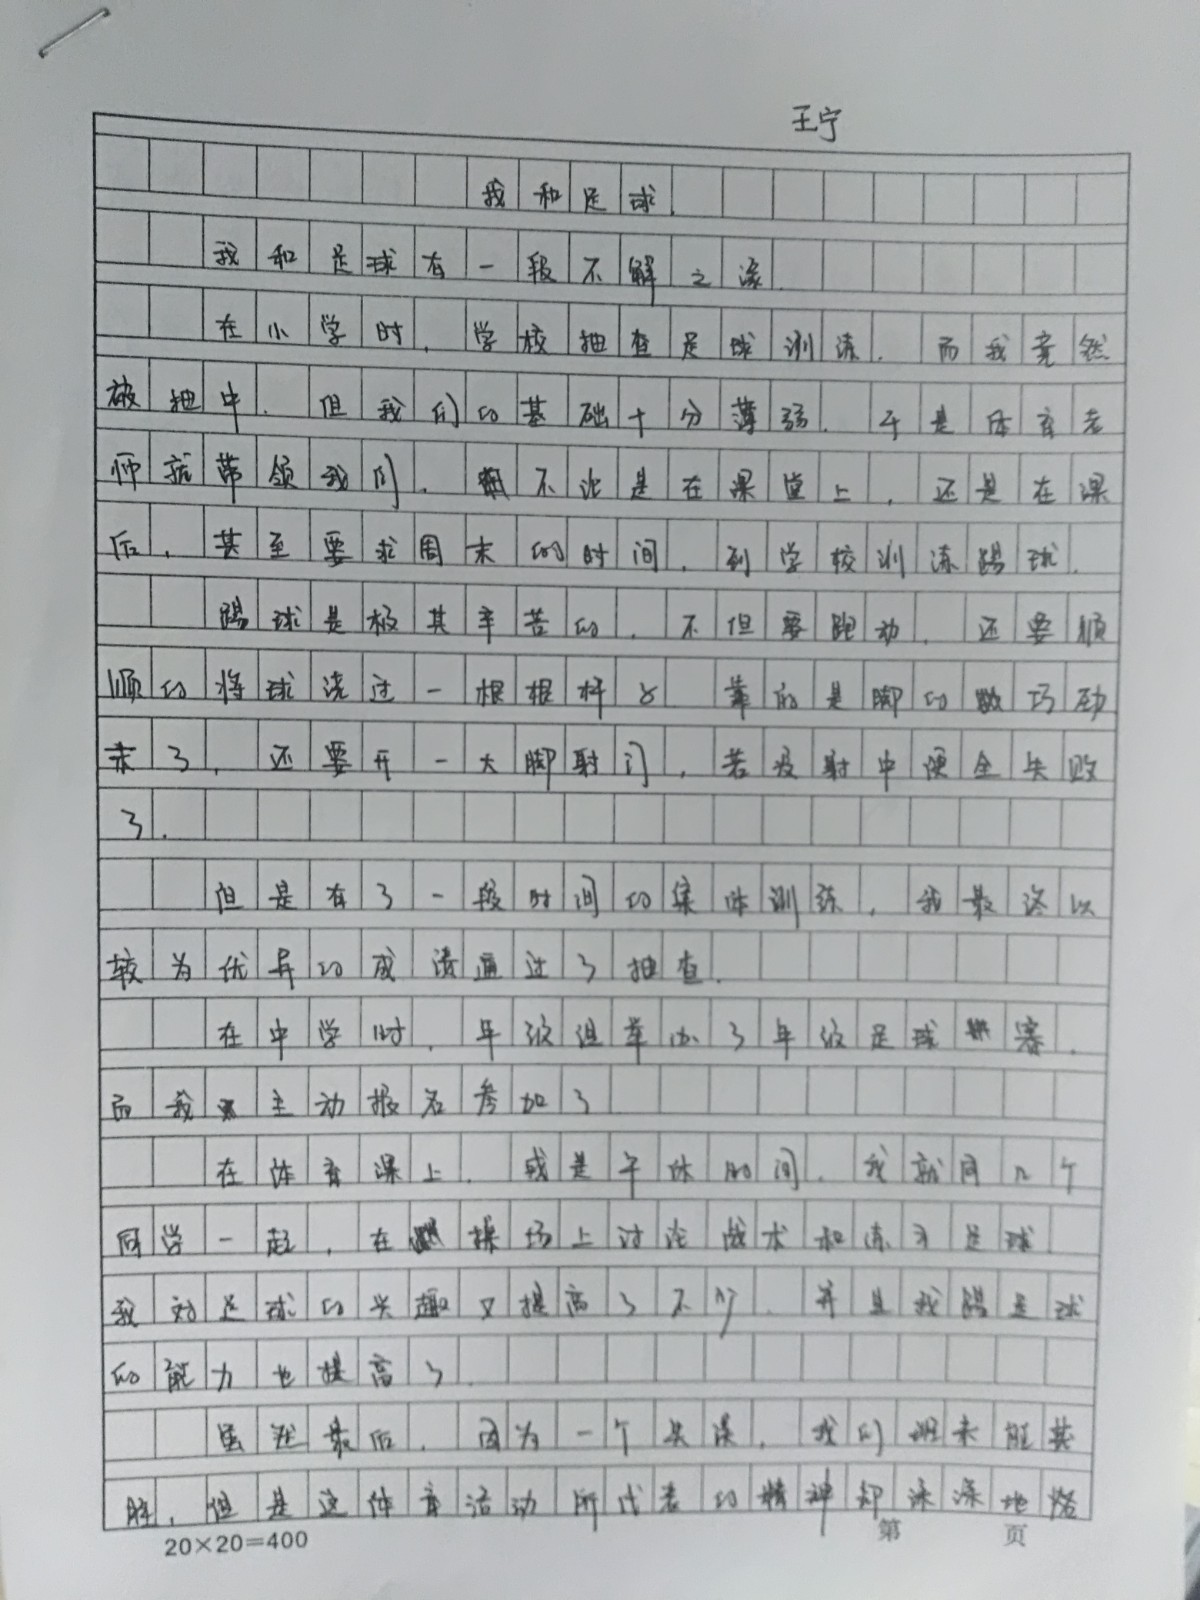 王宁
我和足球
我和足球有一段不解之缘.
在小学时,学校抽查足球训练.而我竟然
被抽中.但我们的基础十分薄弱.于是体育老
师就带领我们,不论是在课堂上,还是在课
后,甚至要求周末的时间,到学校训练踢球.
踢球是极其辛苦的,不但要跑动,还要顺
顺的将球绕过一根根杆.靠的是脚的巧劲
未了,还要开一大脚射门,若没射中便全失败
了.
但是有了一段时间的集体训练,我最终以
较为优异的成绩通过了抽查.
在中学时,年级组举办了年级足球赛.
而我主动报名参加了
在体育课上,或是午休时间,我就同几个
同学一起,在操场上讨论战术和练习足球
我对足球的兴趣又提高了不少.并且我踢足球
的能力也提高了.
虽然最后,因为一个失误,我们班未能获
胜,但是这体育活动所代表的精神却深深地烙
20×20=400 第 页